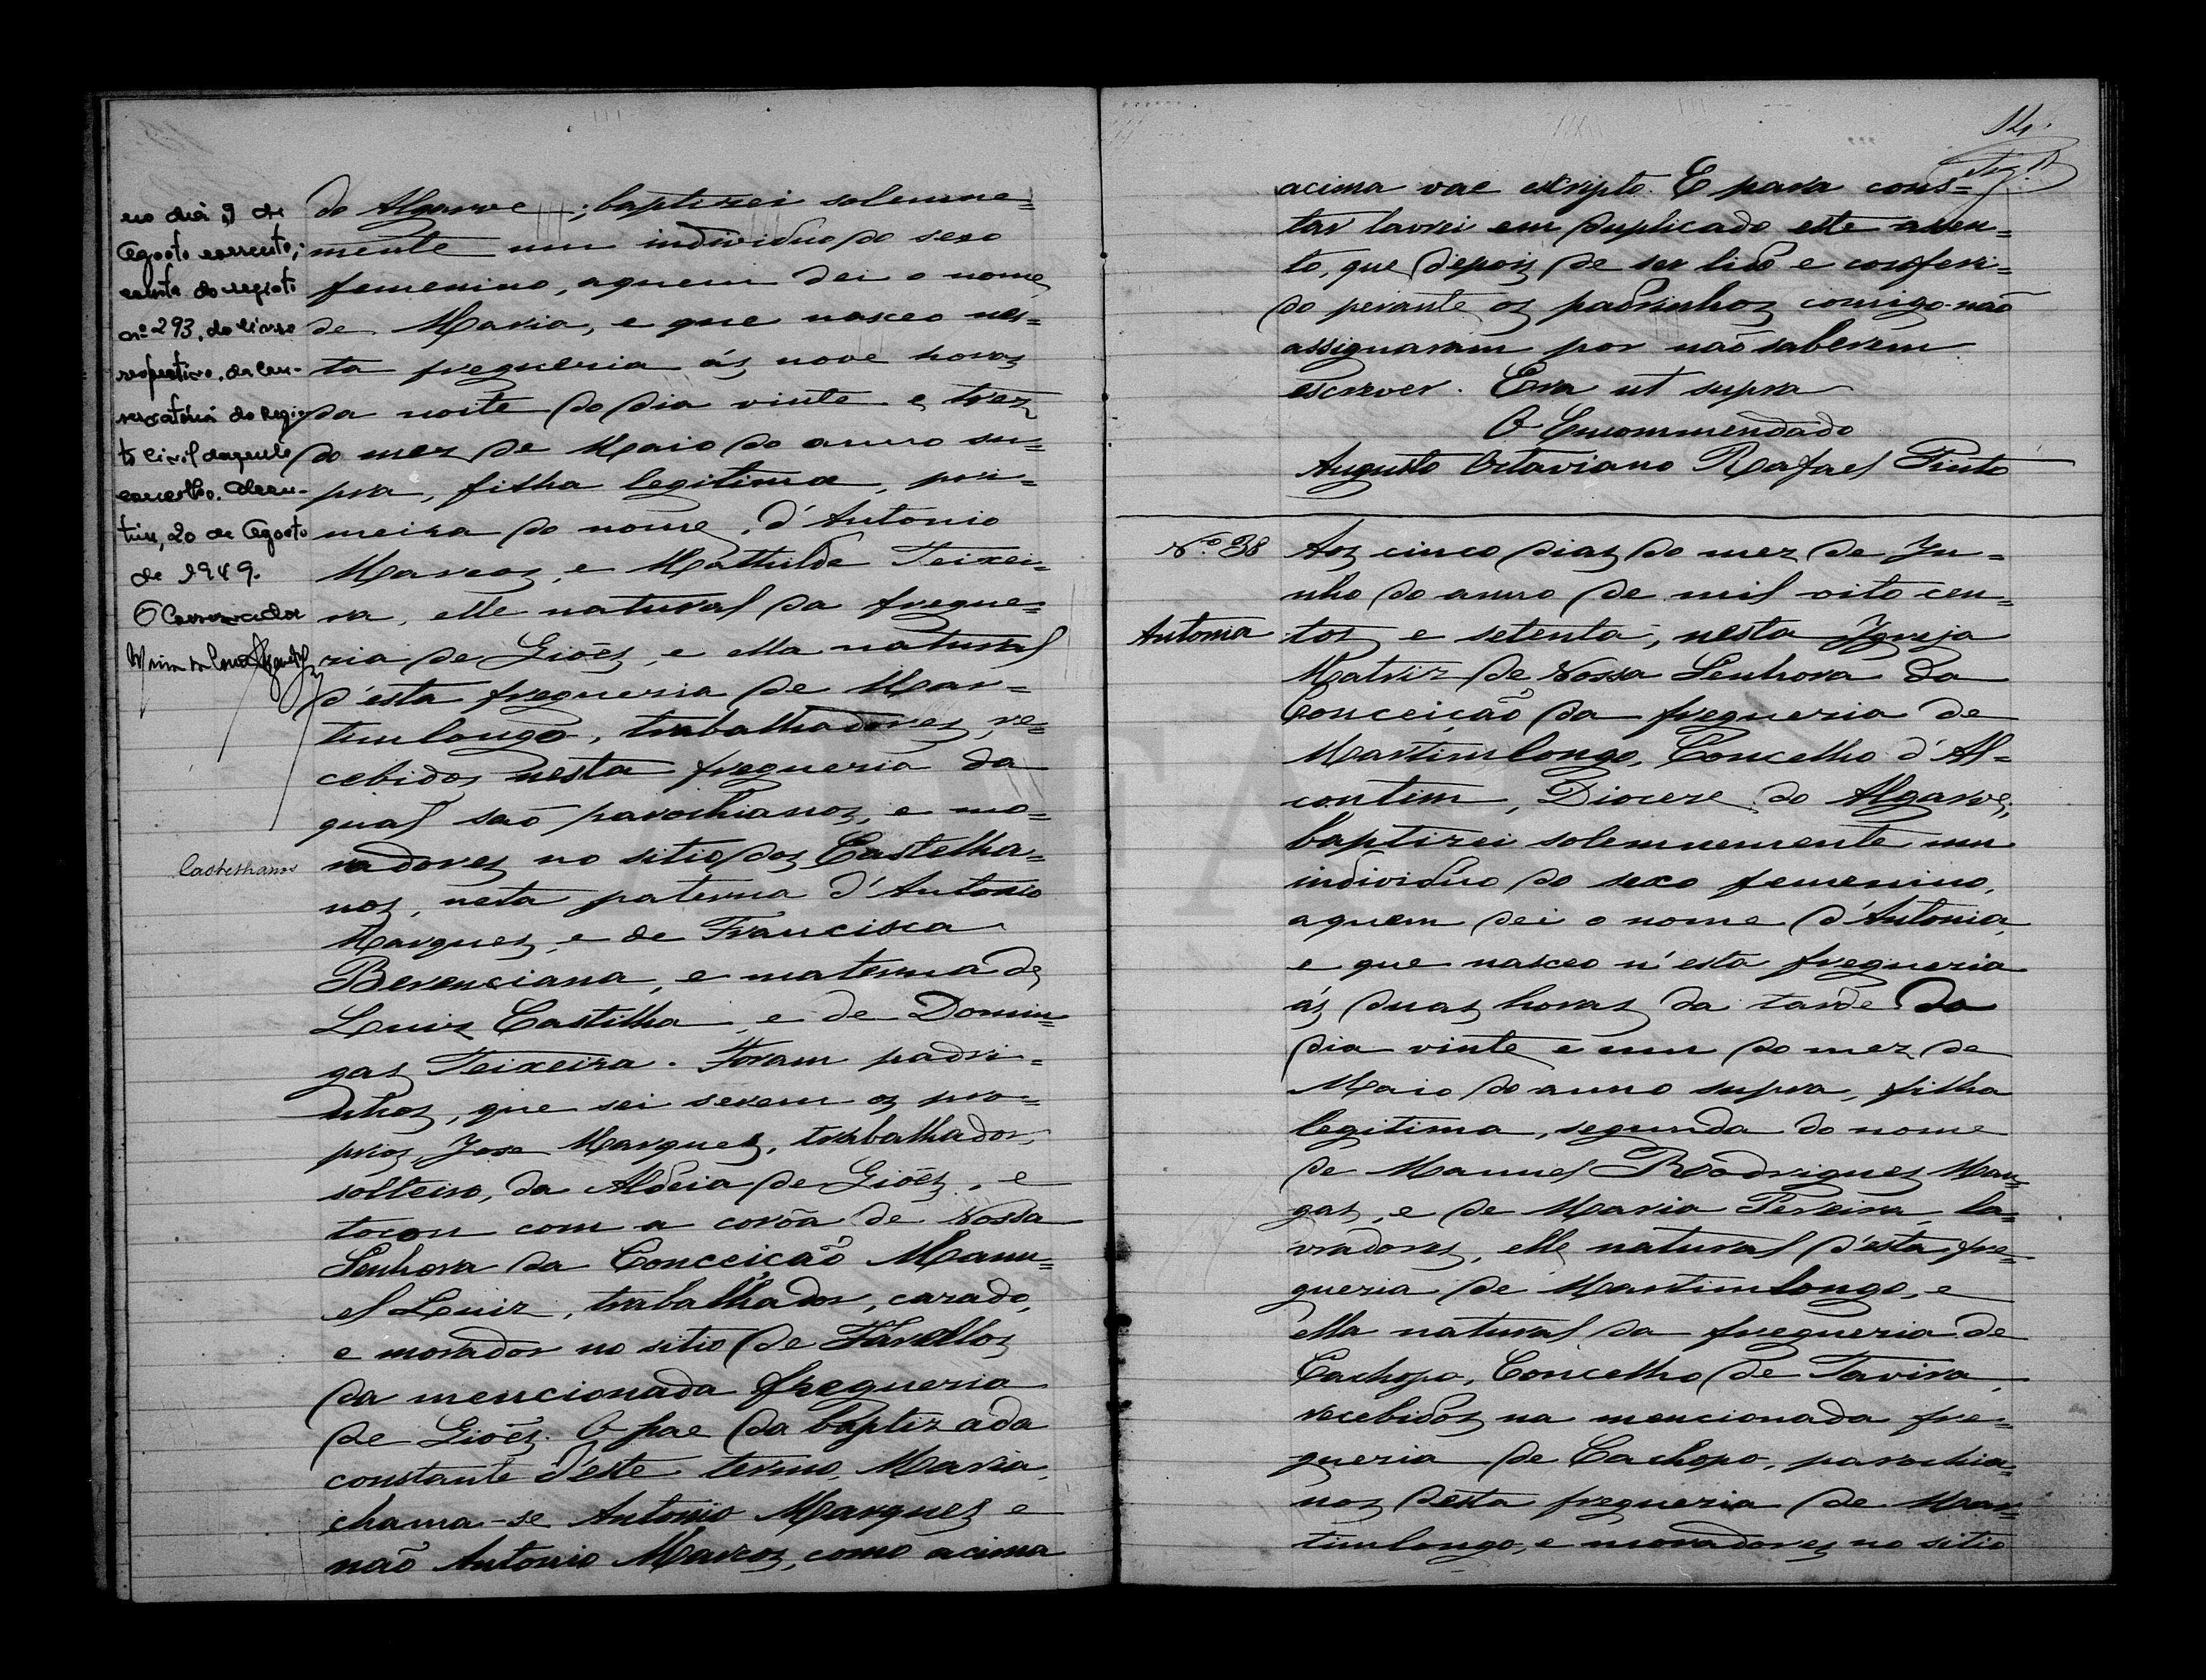 no dia 9 de
Agosto corrente;
consta do registo
nº 293, do livro
respectivo, da Con-
servatória do Regis-
to Civil daquele
concelho. Alcou-
tim, 20 de Agosto
de 1949.
O Conservador
Castelhanos
do Algarve; baptizei solemne=
mente um individuo do sexo
femenino, aquem dei o nome
de Maria, e que nasceo nes=
ta fregueria ás nove horas
da noite do dia vinte e trez
do mez de Maio do anno su=
pra, filha legitima, pri=
meira do nome, d'Antonio
Marcos, e Mathilde Teixei=
ra, elle natural da fregue=
ria de Giões, e ella natural
d'esta fregueria de Mar=
timlongo, trabalhadores, re=
cebidos nesta fregueria da
qual são parochianos, e mo=
radores no sitio dos Castelha=
nos, neta paterna d'Antonio
Marques, e de Francisca
, e materna de
Luiz Castilho, e de Domin=
gas Teixeira. Foram padri=
nhos, que sei serem os pro=
prios, Jose Marques, trabalhador,
solteiro, da Aldeia de Giões, e
tocou com a corôa de Nossa
Senhora da Conceição Manu=
el Luiz, trabalhador, cazado,
e morador no sitio de Farellos
da mencionada fregueria
de Giões. O pae da baptizada
constante d'este termo, Maria,
chama-se Antonio Marques e
não Antonio Marcos, como acima
14
acima vae escripto. E para cons=
tar lavrei em duplicado este assen=
to, que depois de ser lido e conferi=
do perante os padrinhos comigo não
assignaram por não saberem
escrever. Era ut supra
O Encommendado
Augusto Octaviano Rafael Pinto
Nº 38
Antonia
Aos cinco dias do mez de Ju=
nho do anno de mil oito cen=
tos e setenta, nesta Igreja
Matriz de Nossa Senhora da
Conceição da fregueria de
Martimlongo, Concelho d'Al=
coutim, Diocese do Algarve;
baptizei solemnemente um
individuo do sexo femenino,
aquem dei o nome d'Antonia,
e que nasceo n'esta fregueria
ás duas horas da tarde do
dia vinte e um do mez de
Maio do anno supra, filha
legitima, segunda do nome
de Manuel Rodrigues Man=
gas, e de Maria Pereira, la=
vradores, elle natural d'esta fre=
gueria de Martimlongo, e
ella natural da fregueria de
Cachopo, Concelho de Tavira,
recebidos na mencionada fre=
gueria de Cachopo, parochia=
nos desta fregueria de Mar=
timlongo, e moradores no sitio